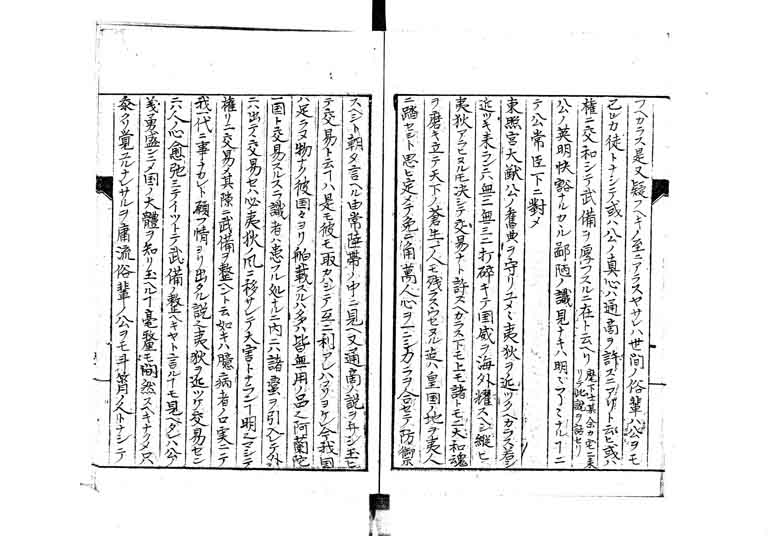 フヘカラス是又疑フヘキノ至ニアラスヤサレハ世間ノ俗輩ハ公ヲモ
己レカ徒トナシテ或ハ公ノ真心ハ通商ヲ許スニアリト云ヒ或ハ
権ニ交和シテ武備ヲ厚フスルニ在ト云ヘリ
公ノ英明快豁ナルカヽル鄙陋ノ識見ナキハ明ニ
テ公常臣下ニ對メ
東照宮大猷公ノ舊典ヲ守リユメ〳〵夷狄ヲ近ツクヘカラス若シ
近ツキ来ランニハ無二無三ニ打碎キテ国威ヲ海外耀スヘシ縦ヒ
夷狄アラストモ決シテ交易ナト許スヘカラス下モ上モ諸トモニ大和魂
ヲ磨キ立テ天下ノ蒼生一人モ残ラスウセヌル迄ハ皇国ノ地ヲ夷人
ニ踏セシト思ヒ定メテ兎ニ角萬人心ヲ一ニシ力ヲ合セテ防禦
スヘシト朝夕言ヘル由常陸帯ノ中ニ見ヘ又通商ノ説ヲ弁シ玉ヒ
テ交易ト云ハ是モ彼モ取カハシテ互ニ利アレハヨケレ今我国
ハ足ラヌ物ナク彼国々ヨリ舶載スルハ多ハ皆無用ノ品也阿蘭陀
一国ト交易スルスラ識者ハ患フル処ナルニ内ニハ諸蛮ヲ引入レテ外
ニハ出テ交易セハ必夷狄ノ風ニ移サレテ大害トナラン明ケシ
権リニ交易メ其隙ニ武備ヲ整ヘント云如キハ臆病者ノ口実ニテ
我一代ニ事ナカレト願フ情ヨリ出タル説也夷狄ヲ近ツケ交易セン
ニハ人ノ心愈弛ミテイツトテ武備ノ整ヘキヤト言ルモ見ヘタレハ公ノ
義勇盛ニメ国ノ大體ヲ知リ玉ヘル毫釐モ間然スヘキナク
ヲ庸流俗輩ノ公ヲモ斗筲ノ人トナシテ